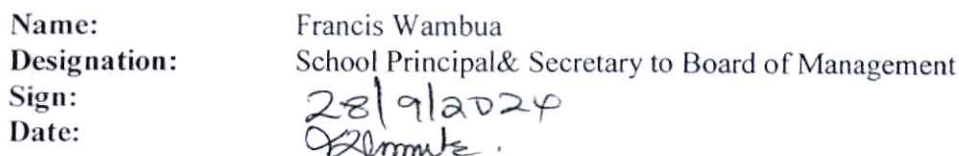 Name: Francis Wambua
Designation: School Principal& Secretary to Board of Management
Sign: 28/9/2024
Date: